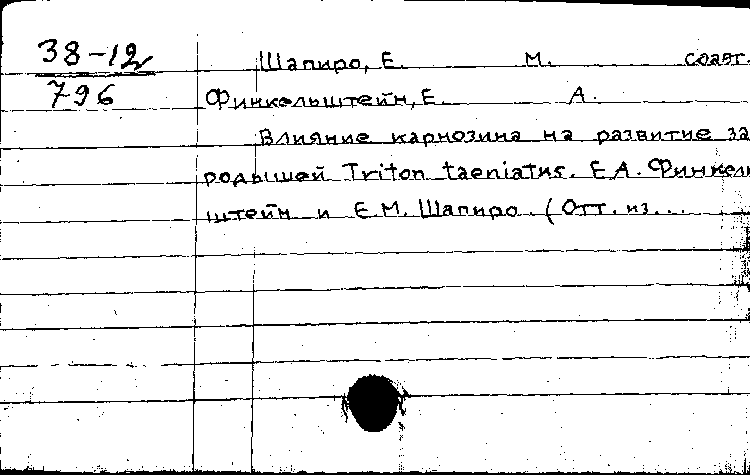 38-12 Шапиро, Е. М. соавт.
796 Финкельштейн, Е. А.
Влияние карнозина на развитие за
родышей Triton taeniatus. Е.А. Финкель
штейн и Е.М. Шапиро. (Отт. из...